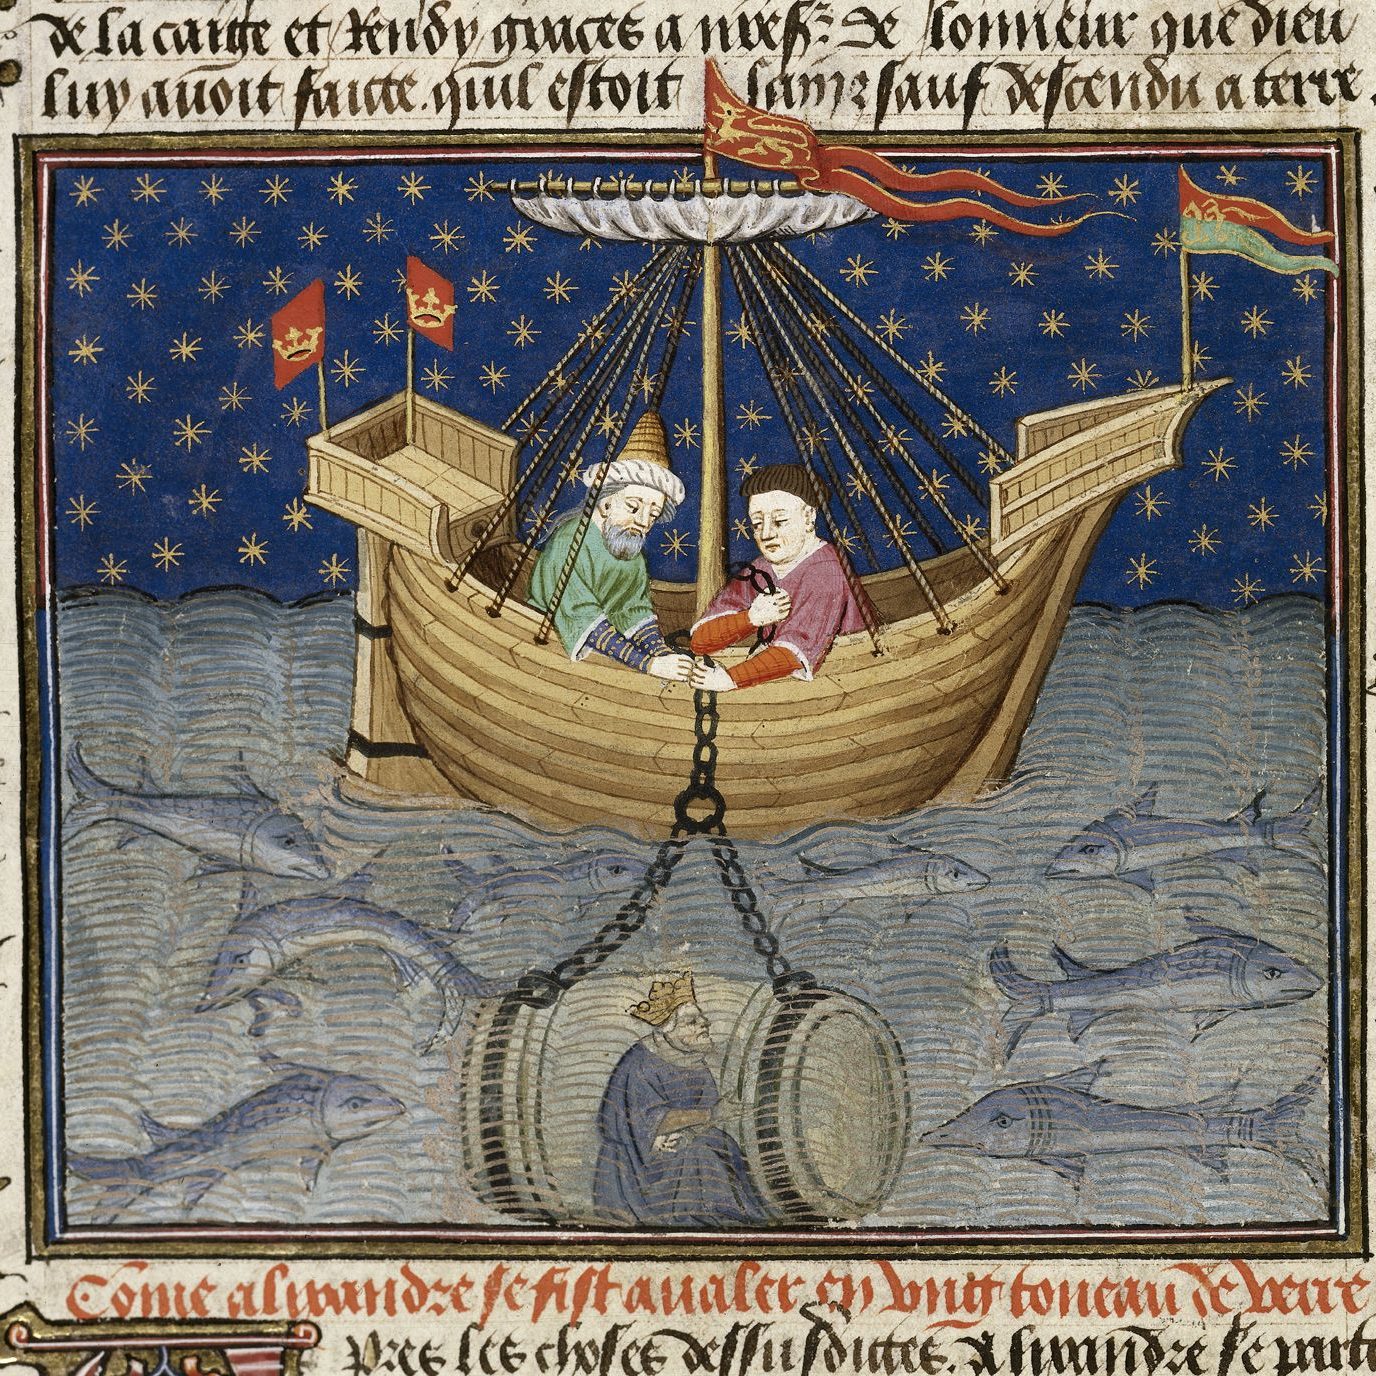 de la caige et Rendy graces a nres.r de lonneur que dieu
luy auoit faicte. quil estoit sain z sauf descendu a terre.
Come alixandre se fist aualer en vng toneau de verre
pres les choses dessusdictes. Alixandre se parti